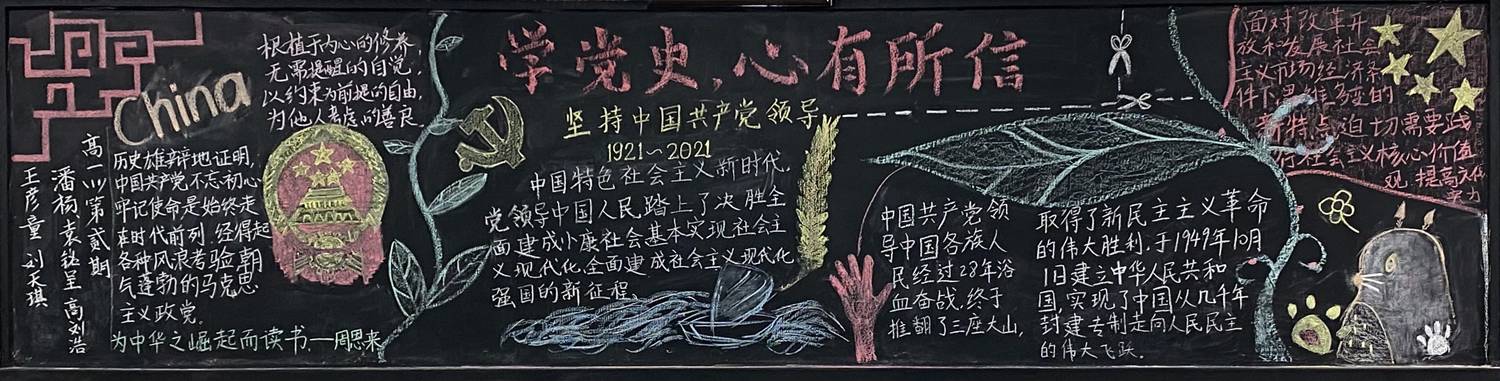 学党史，心有所信
China
根植于内心的修养，
无需提醒的自觉，
以约束为前提的自由，
为他人着想的善良
高一川第贰期
潘杨 袁钰呈 高刘浩
王彦童 刘天琪
历史雄辩地证明，
中国共产党不忘初心
牢记使命是始终走
在时代前列，经得起
各种风浪考验，朝
气蓬勃的马克思
主义政党。
为中华之崛起而读书。—周恩来
坚持中国共产党领导
1921～2021
中国特色社会主义新时代，
党领导中国人民踏上了决胜全
面建成小康社会基本实现社会主
义现代化，全面建成社会主义现代化
强国的新征程。
中国共产党领
导中国各族人
民经过28年浴
血奋战，终于
推翻了三座大山，
取得了新民主主义革命
的伟大胜利，于1949年10月
1日建立中华人民共和
国，实现了中国从几千年
封建专制走向人民民主
的伟大飞跃。
面对改革开
放和发展社会
主义市场经济条
件下思维多变的
新特点迫切需要践
行社会主义核心价值
观，提高文化